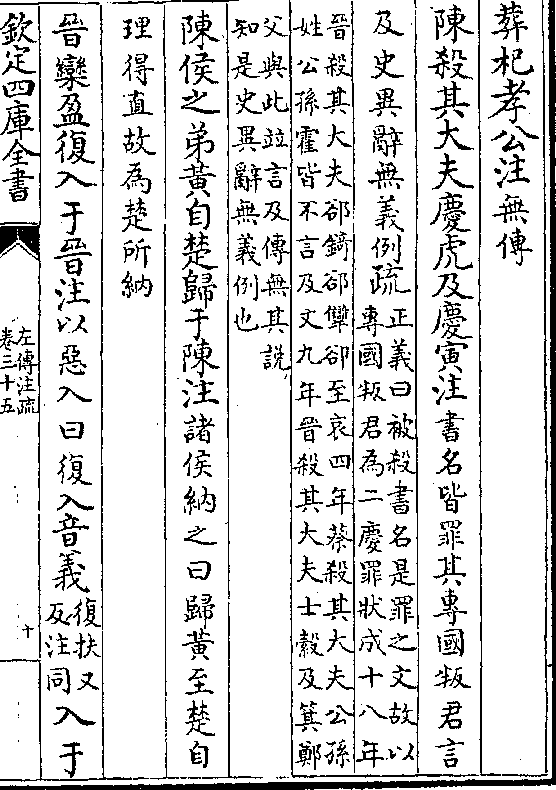 葬杞孝公注無傳
陳殺其大夫慶虎及慶寅注書名皆罪其專國叛君言
及史異辭無義例疏正義曰被殺書名是罪之文故以
專國叛君為二慶罪狀成十八年
晉殺其大夫郤錡郤犫郤至哀四年蔡殺其大夫公孫
姓公孫霍皆不言及文九年晉殺其大夫士縠及箕鄭
父與此並言及傳無其説
知是史異辭無義例也
陳侯之弟黃自楚歸于陳注諸侯納之曰歸黃至楚自
理得直故為楚所納
晉欒盈復入于晉注以惡入曰復入音義復扶又
反注同入于
欽定四庫全書
左傳注疏
卷三十五
十